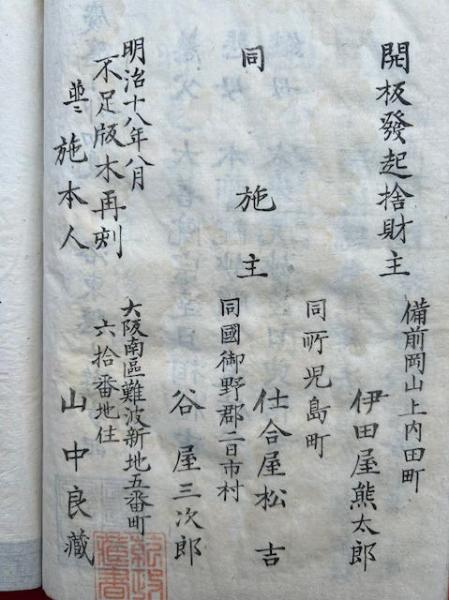 開板發起捨財主
備前岡山上内田町
伊田屋熊太郎
同所児島町
同施主
仕合屋松吉
同國御野郡二日市村
谷屋三次郎
明治十八年八月
不足版木再刻
並施本人
大阪南區難波新地五番町
六拾番地住
山中良藏